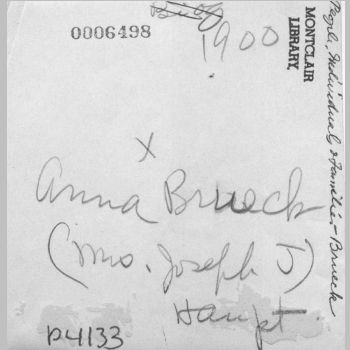 0006498
1900
MONTCLAIR
LIBRARY,
People, Individuals & Families - Brueck
x
Anna Brueck
(Mrs. Joseph J)
Haupt
P4133